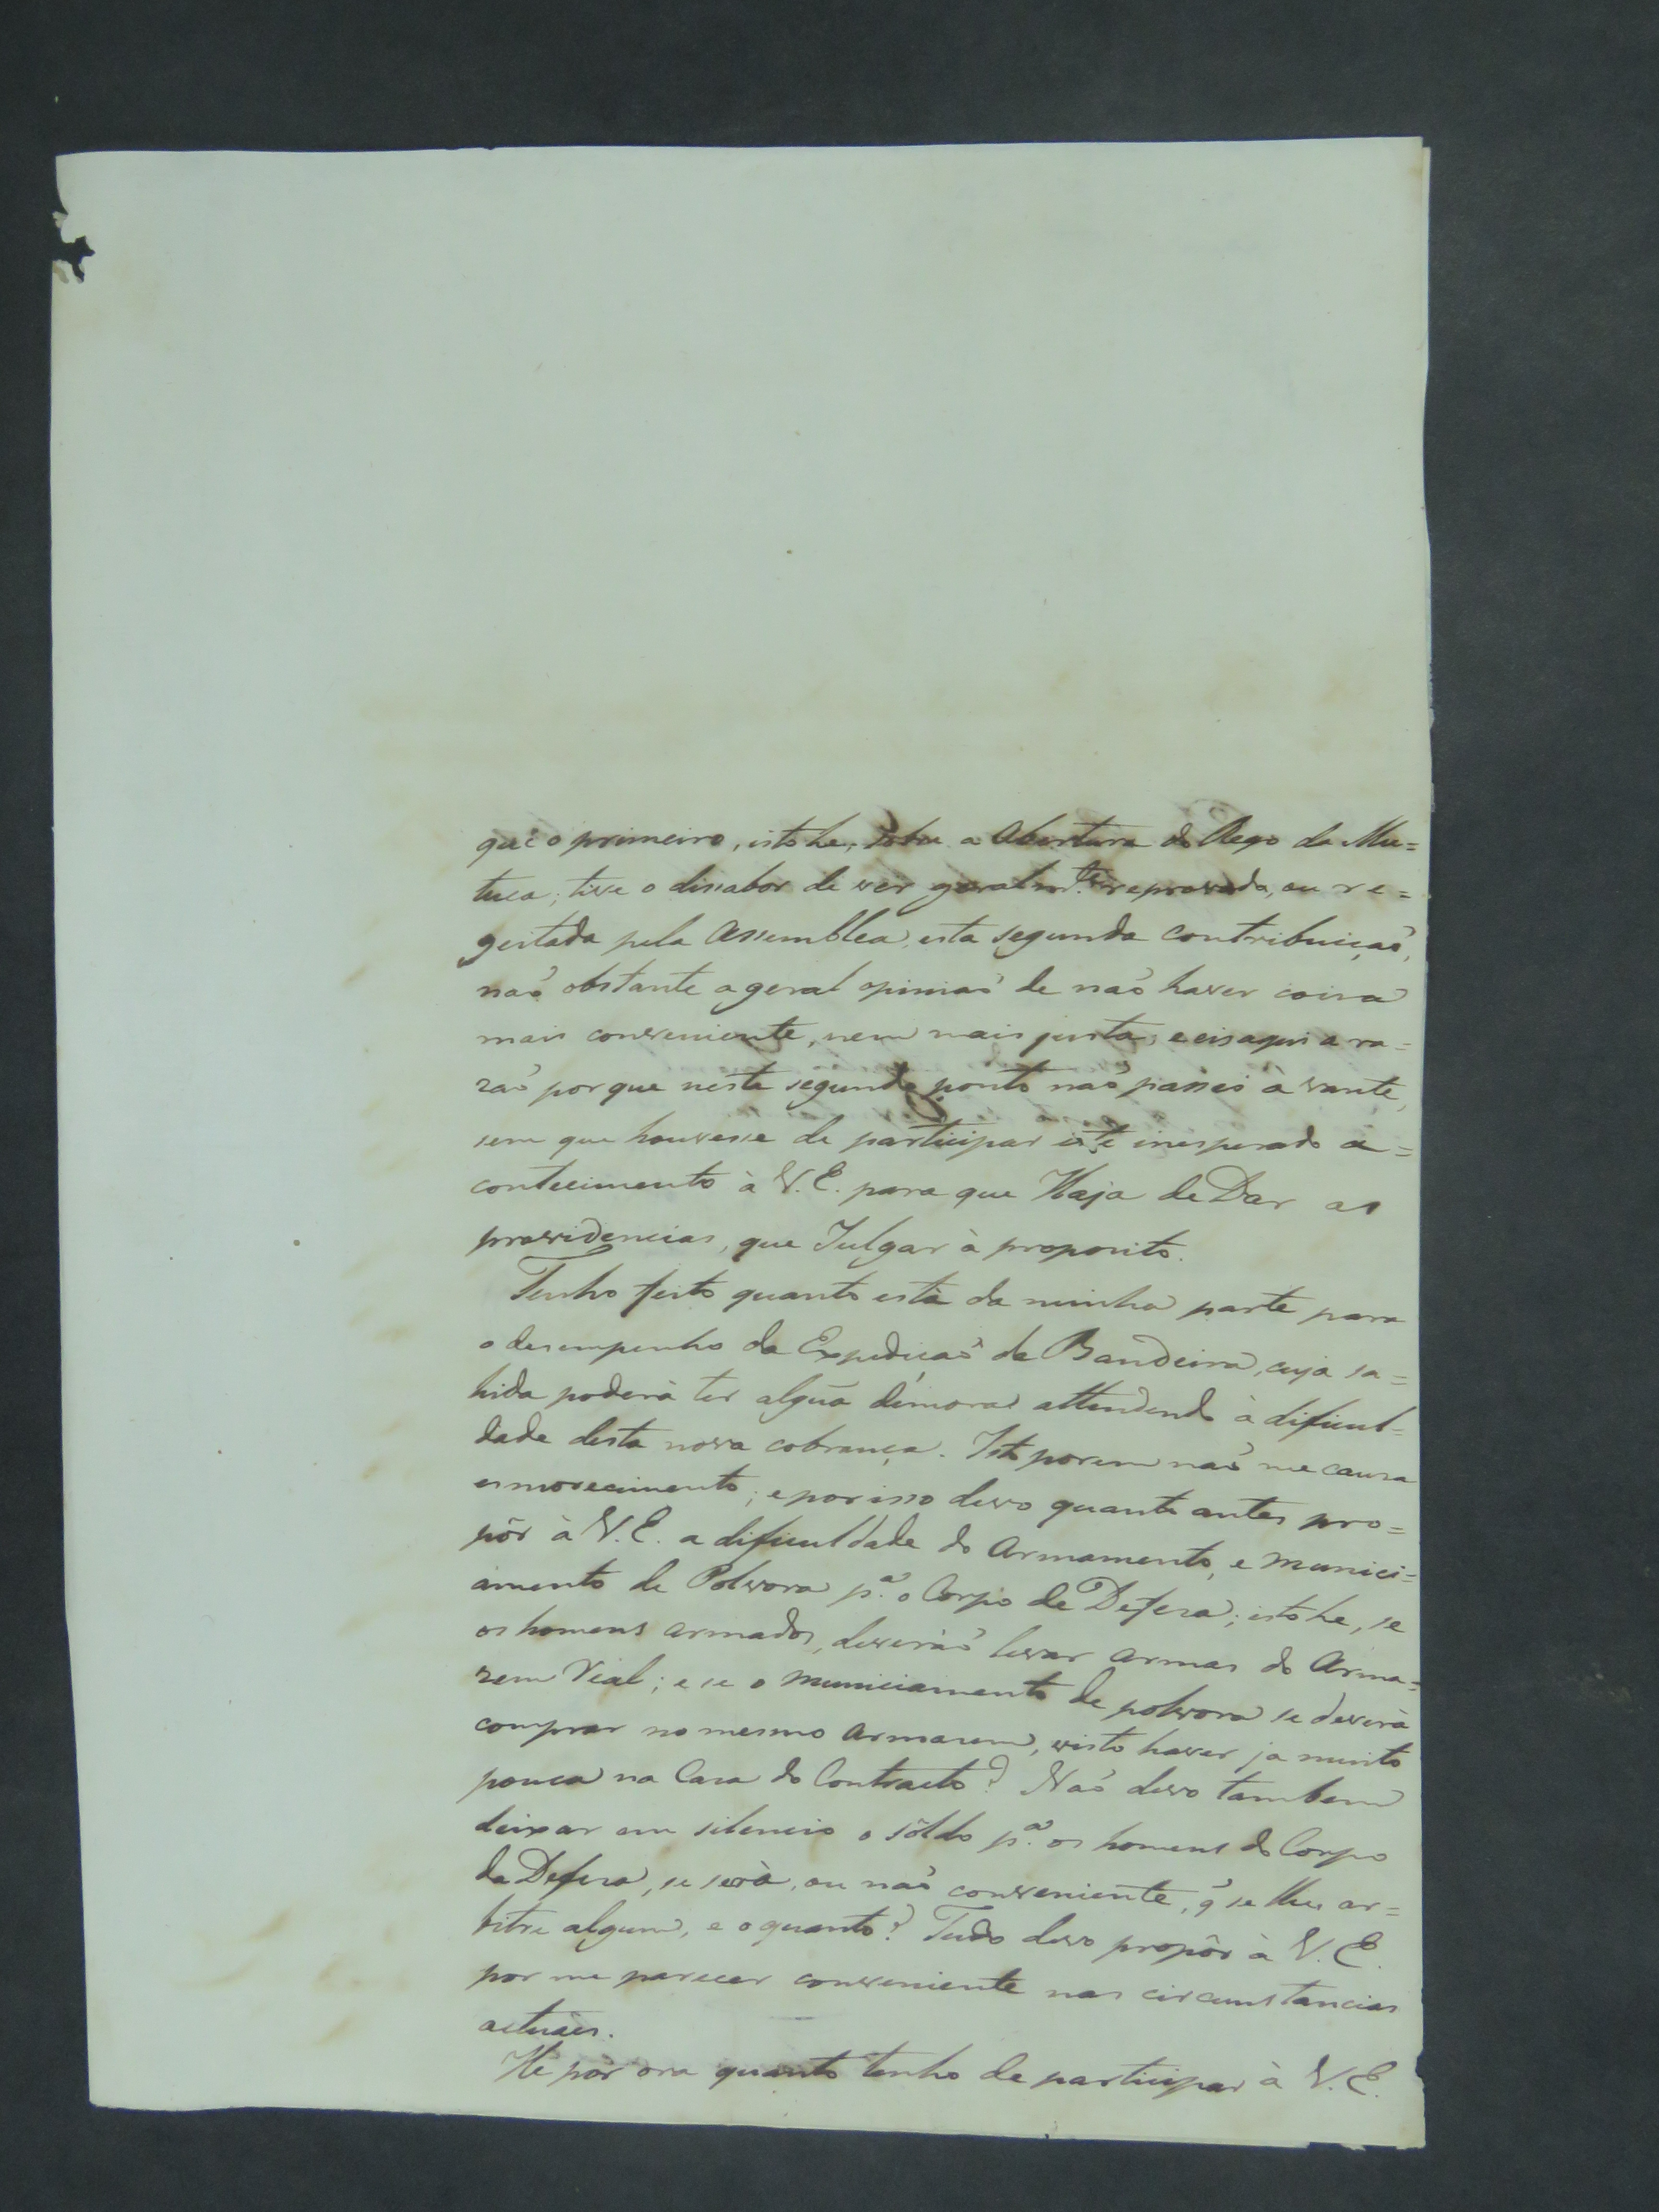 que o primeiro, isto he, sobre a Abertura do Rego da Mu=
tuca; tive o dissabor de ver geralmte. reprovada, ou re=
geitada pela Assemblea, esta segunda contribuiçaõ,
naõ obstante a geral opiniaõ de naõ haver coisa
mais conveniente, nem mais justa; e eis aqui a ra=
zaõ porque neste segundo ponto naõ passei à vante,
sem que houvesse de participar este inesperado a=
contecimento à V. E. para que Haja de Dar as
providencias, que Julgar à proposito.
Tenho feito quanto està da minha parte para
o desempenho da Expediçaõ da Bandeira, cuja sa=
hida poderà ter algũa dèmora attendendo à dificul=
dade desta nova cobrança. Isto porem naõ me causa
esmorecimento; e por isso devo quanto antes pro=
pôr à V. E. a dificuldade do Armamento, e munici=
amento de Polvora pª. o Corpo de Defesa; isto he, se
os homens armados, deveràõ levar armas do Arma=
zem Real; e se o municiamento de polvora se deverà
comprar no mesmo Armazem, visto haver ja muito
pouca na Casa do Contracto? Naõ devo tambem
deixar em silencio o sôldo pª. os homens do Corpo
da Defesa, se serà, ou naõ conveniente, q̃ se lhes ar=
bitre algum, e o quanto? Tudo devo propôr à V. E.
por me parecer conveniente nas circunstancias
actuàes.
He pòr ora quanto tenho de participar à V. E.